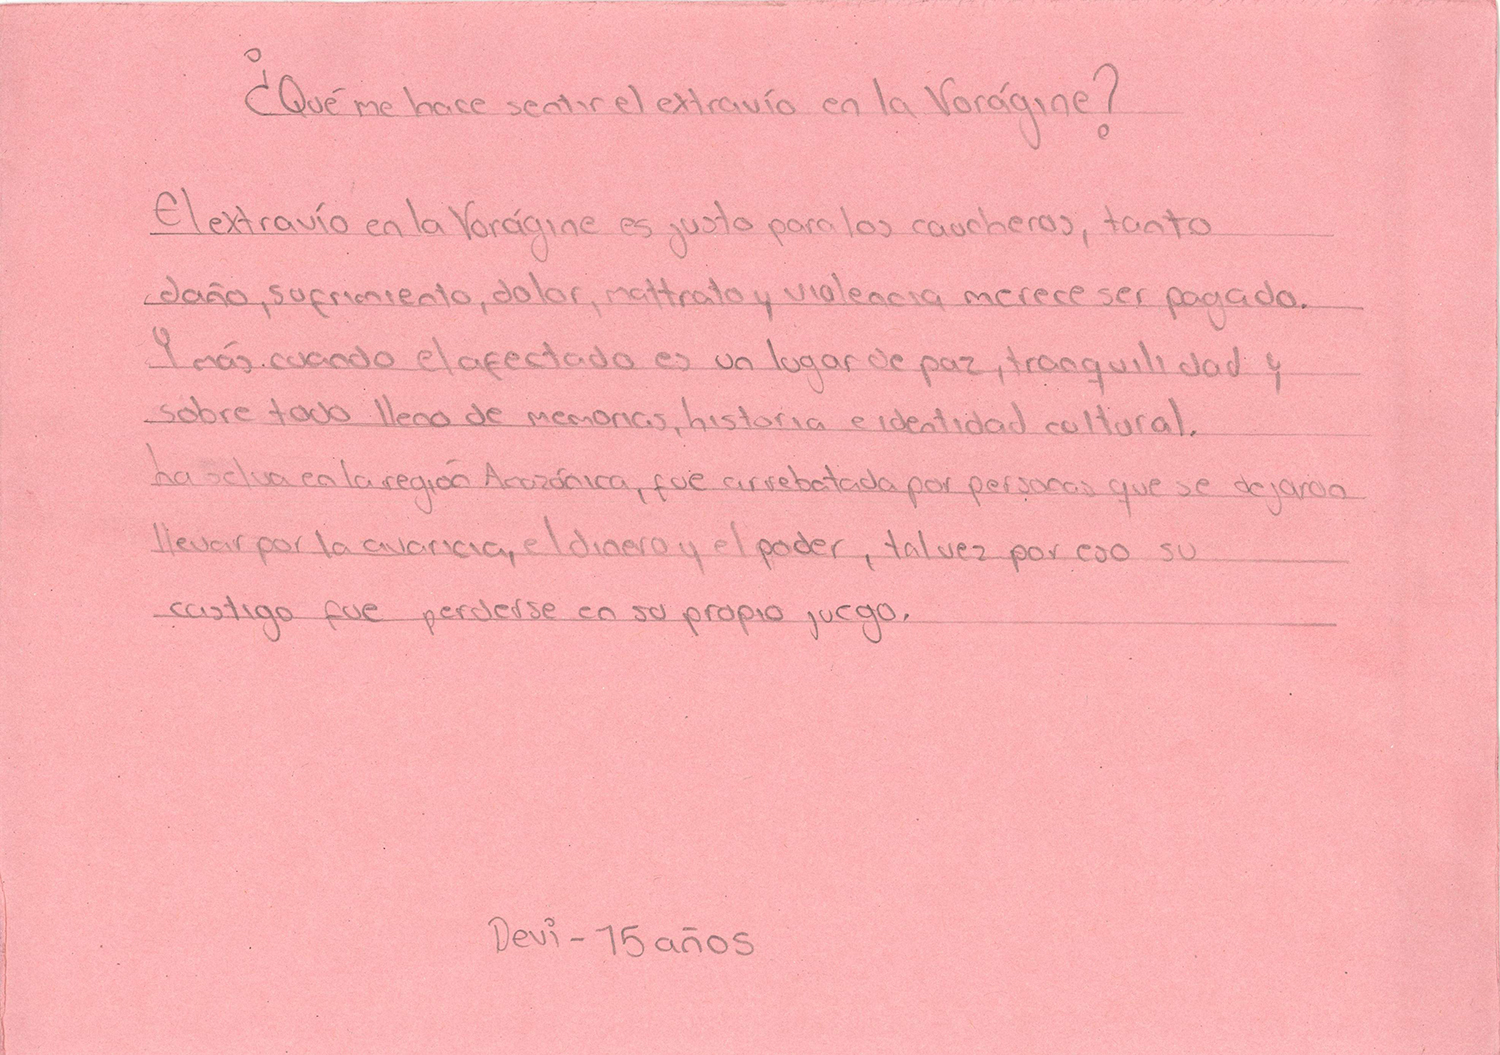 ¿Qué me hace sentir el extravío en la Vorágine?
El extravío en la Vorágine es justo para los caucheros, tanto
daño, sufrimiento, dolor, maltrato y violencia merece ser pagado.
Y más cuando el afectado es un lugar de paz, tranquilidad y
sobre todo lleno de memorias, historia e identidad cultural.
La selva en la región Amazónica, fue arrebatada por personas que se dejaron
llevar por la avaricia, el dinero y el poder, tal vez por eso su
castigo fue perderse en su propio juego.
Devi - 15 años